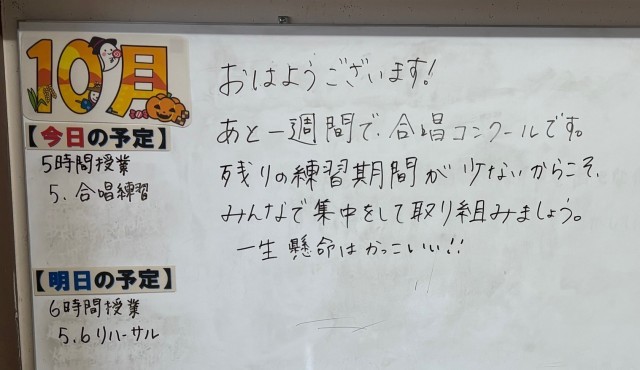 10月
【今日の予定】
5時間授業
5. 合唱練習
【明日の予定】
6時間授業
5.6リハーサル
おはようございます!
あと一週間で、合唱コンクールです。
残りの練習期間が少ないからこそ、
みんなで集中をして取り組みましょう。
一生懸命はかっこいい!!